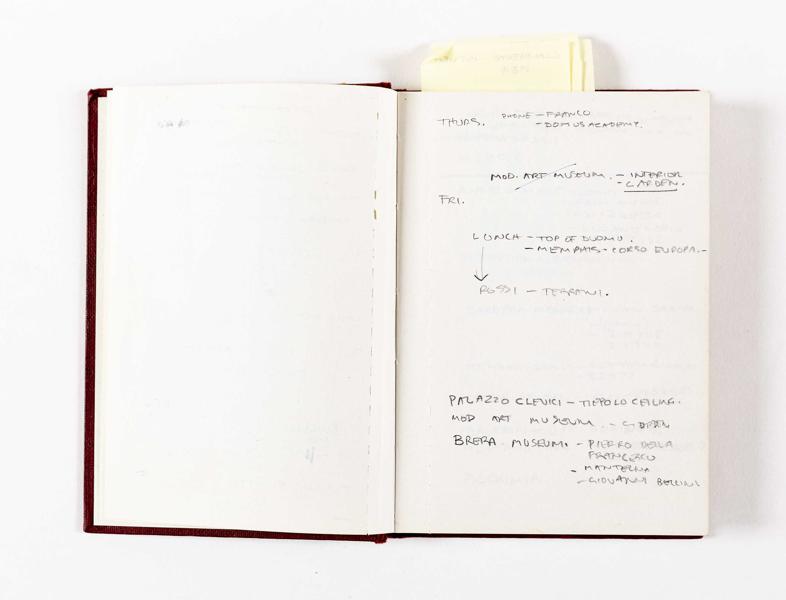 THURS. PHONE - FRANCO
- DOMUS ACADEMY.
MOD. ART MUSEUM. - INTERIOR
- GARDEN.
FRI.
LUNCH - TOP OF DUOMO.
- MEMPHIS - CORSO EUROPA. -
ROSSI - TERRANI.
PALAZZO CLERICI - TIEPOLO CEILING.
MOD ART MUSEUM. -
BRERA MUSEUM. - PIERRO DELLA
FRANCESCO
- MANTEGNA
- GIOVANNI BELLINI